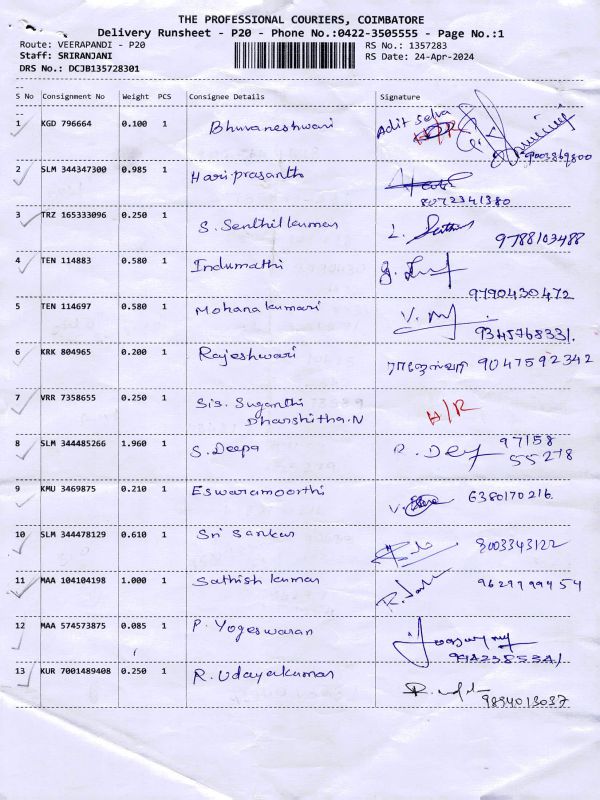 THE PROFESSIONAL COURIERS, COIMBATORE
Delivery Runsheet - P20 - Phone No.:0422-3505555 - Page No.:1
Route: VEERAPANDI - P20 RS No.: 1357283
Staff: SRIRANJANI RS Date: 24-Apr-2024
DRS No.: DCJB135728301
S No Consignment No Weight PCS Consignee Details Signature
1 KGD 796664 0.100 1 Bhuvaneshwari Adit Selva H/R
9003369800
2 SLM 344347300 0.985 1 Hariprasanth
8072341380
3 TRZ 165333096 0.250 1 S. Senthilkumar 9788103488
4 TEN 114883 0.580 1 Indumathi
9790430472
5 TEN 114697 0.580 1 Mohanakumari
9345768331.
6 KRK 804965 0.200 1 Rajeshwari ராஜேஸ்வரி 9047592342
7 VRR 7358655 0.250 1 Sis. Suganthi H/R
Dharshitha.N
8 SLM 344485266 1.960 1 S. Deepa 97158
55278
9 KMU 3469875 0.210 1 Eswaramoorthi 6380170216.
10 SLM 344478129 0.610 1 Sri Sankar 8003343122
11 MAA 104104198 1.000 1 Sathish kumar 9629799454
12 MAA 574573875 0.085 1 P. Yogeswaran
9942385341
13 KUR 7001489408 0.250 1 R. Udayakumar
9894013037